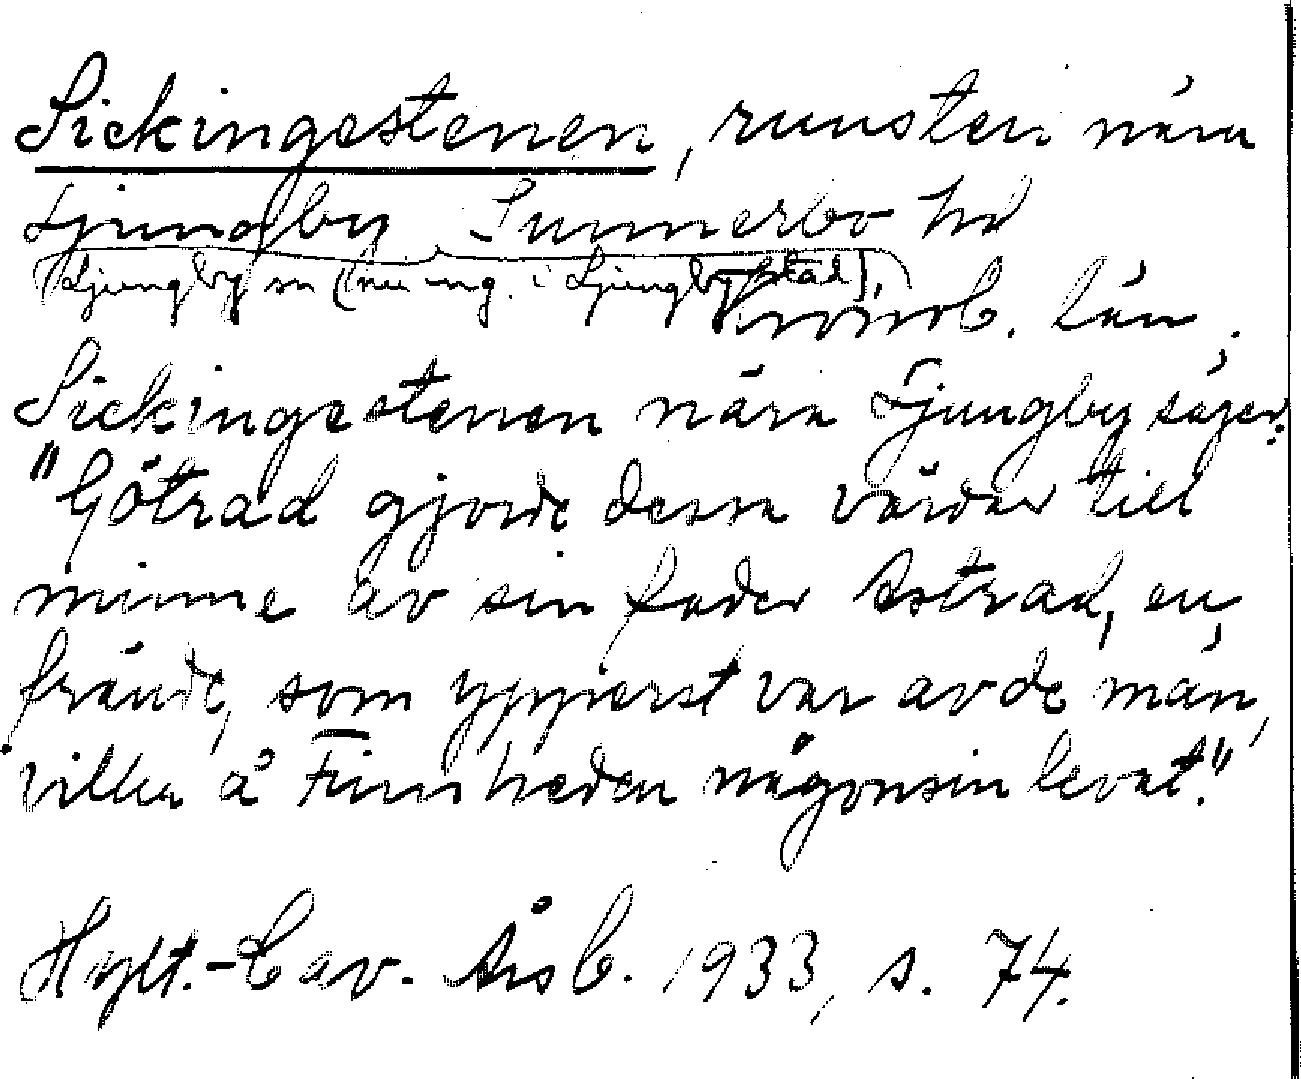 Sickingestenen, runsten nära
Ljungby, Sunnerbo hd
(Ljungby sn (nu ing. i Ljungby stad),)
Kronob. län.
Sickingestenen nära Ljungby säger:
"Götrad gjorde dessa vårdar till
minne av sin fader Astrad, en
frände, som ypperst var av de män,
vilka å Finnheden någonsin levat."
Hylt.-Cav. Årsb. 1933, s. 74.